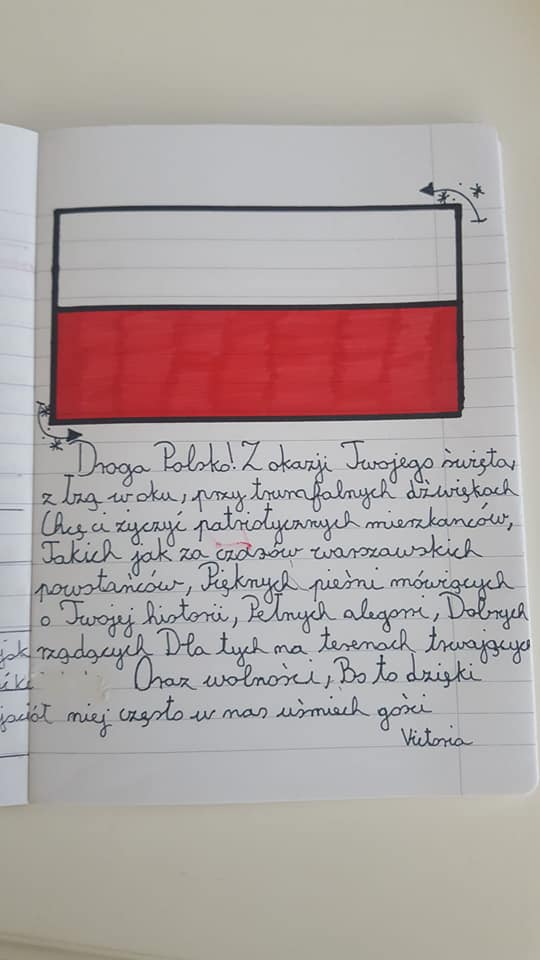 Droga Polsko! Z okazji Twojego święta,
z łzą w oku, przy trumfalnych dźwiękach
Chcę ci życzyć patriotycznych mieszkańców,
Takich jak za czasów warszawskich
powstańców, Pięknych pieśni mówiących
o Twojej historii, Pełnych alegorii, Dobrych
jak rządzących Dla tych na terenach trwający
Oraz wolności, Bo to dzięki
jaciół niej często w nas uśmiech gości
Victoria